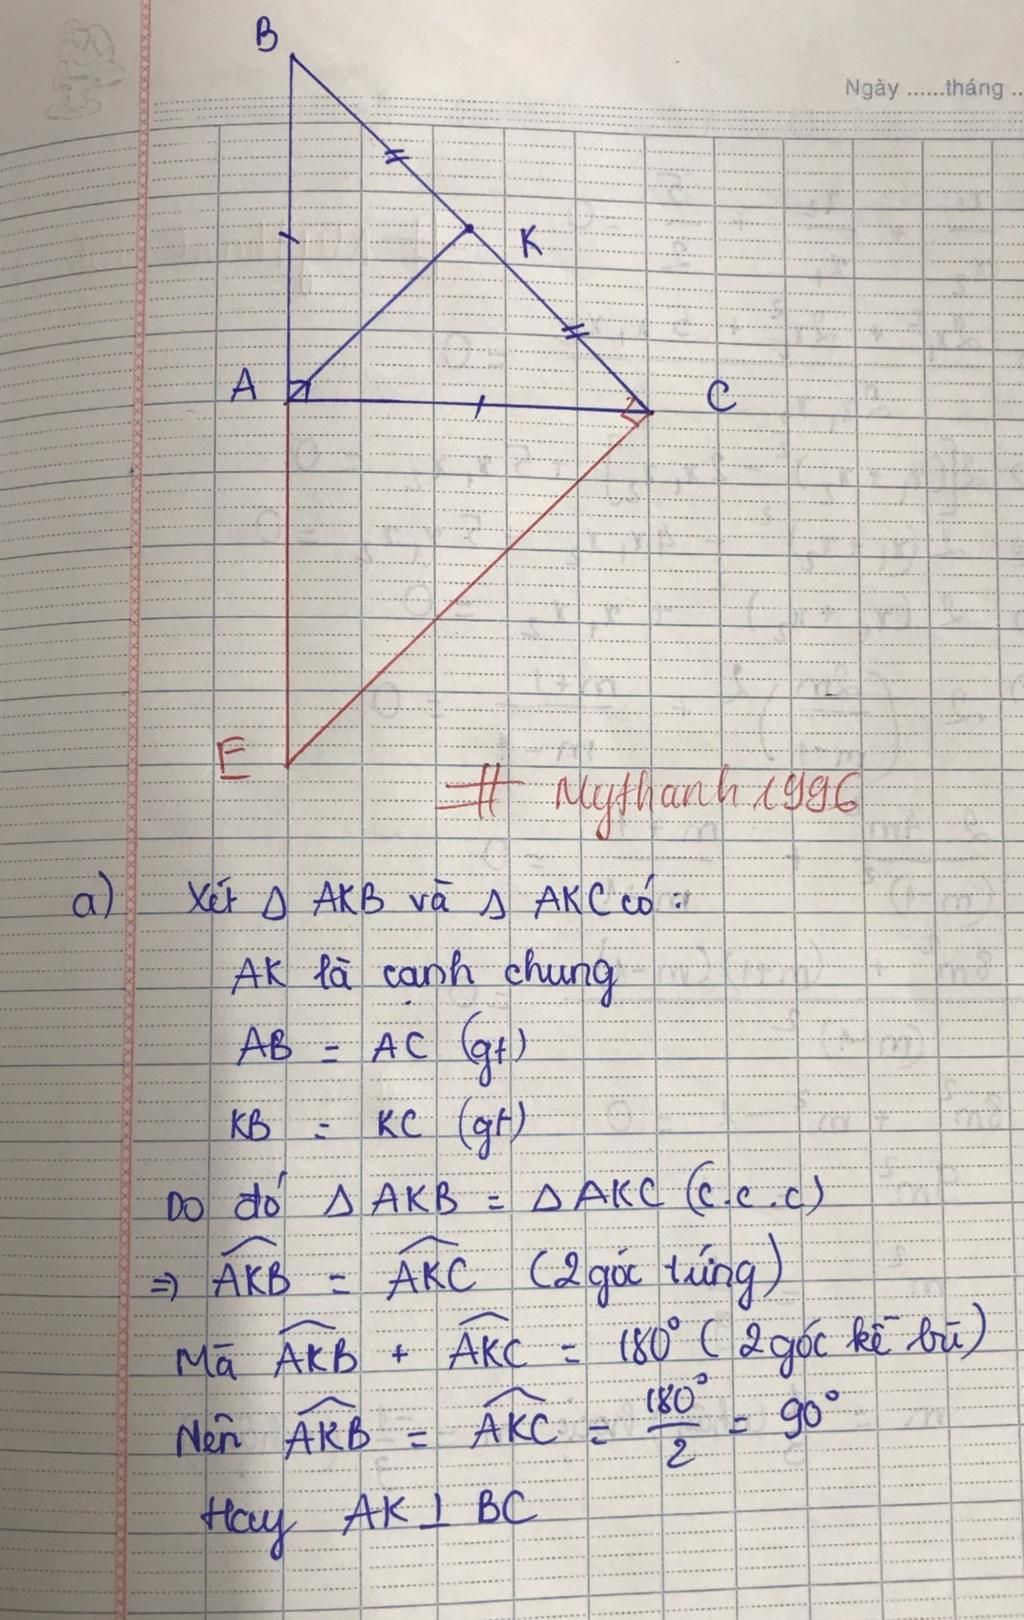 Ngày ......tháng ..
B
K
A
C
E
# Mythanh1996
a) Xét Δ AKB và Δ AKC có:
AK là cạnh chung
AB = AC (gt)
KB = KC (gt)
Do đó Δ AKB = Δ AKC (c.c.c)
⇒ \widehat{AKB} = \widehat{AKC} (2 góc tứng)
Mà \widehat{AKB} + \widehat{AKC} = 180° (2 góc kề bù)
Nên \widehat{AKB} = \widehat{AKC} = \frac{180°}{2} = 90°
Hay AK ⊥ BC